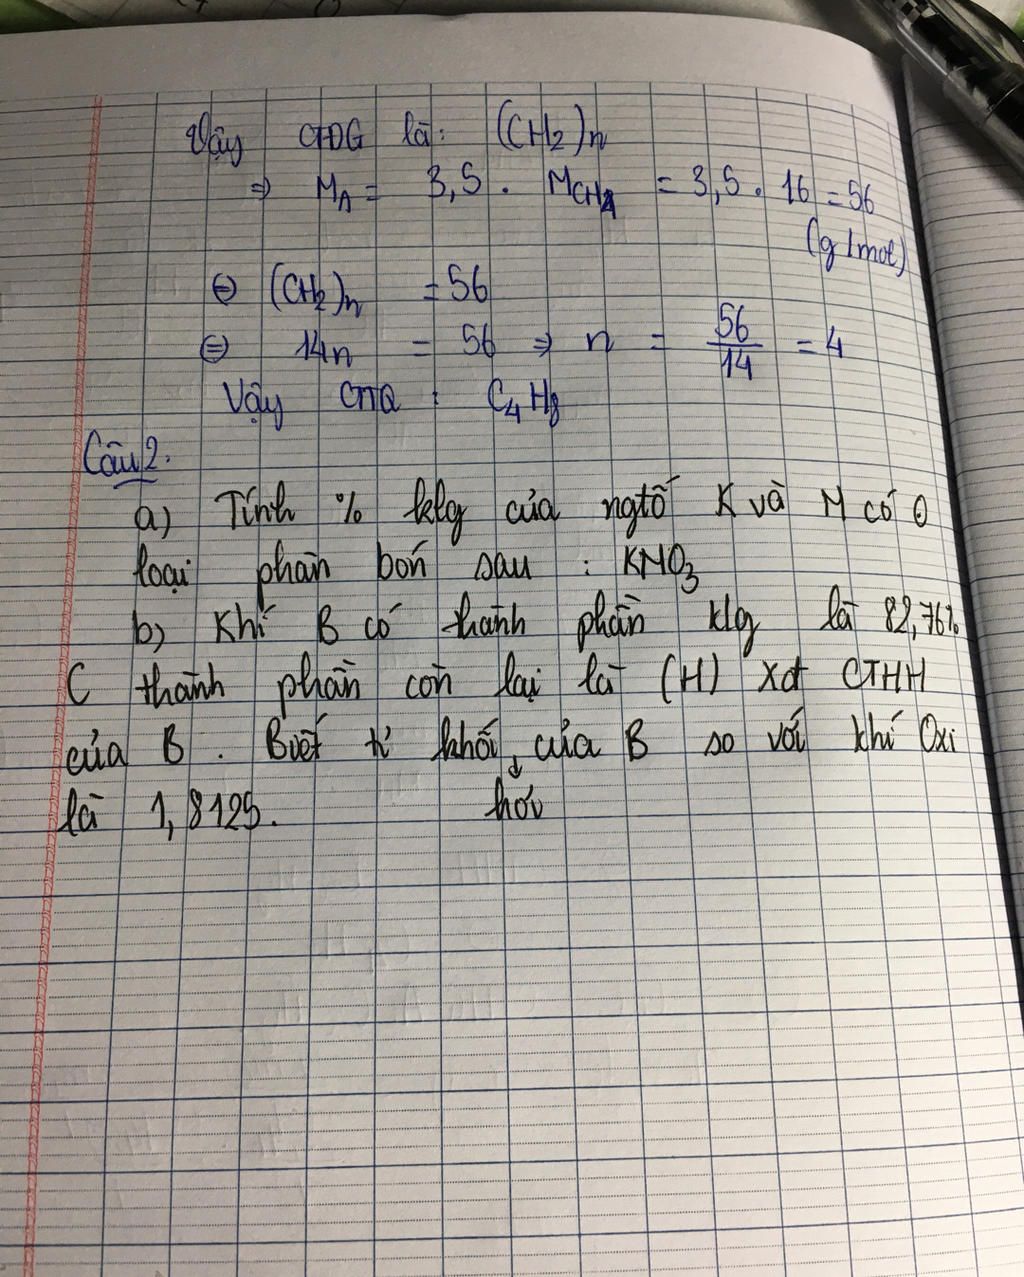 Vậy CTĐG là: (CH2)n
⇒ MA = 3,5 . MCH4 = 3,5 . 16 = 56
(g/mol)
⇔ (CH2)n = 56
⇔ 14n = 56 ⇒ n = 56/14 = 4
Vậy CTTQ : C4H8
Câu 2:
a) Tính % klg của ngtố K và N có ở
loại phân bón sau : KNO3
b) Khí B có thành phần klg là 82,76%
C thành phần còn lại là (H) Xđ CTHH
của B . Biết tỉ khối của B so với khí Oxi
là 1,8125. hơi